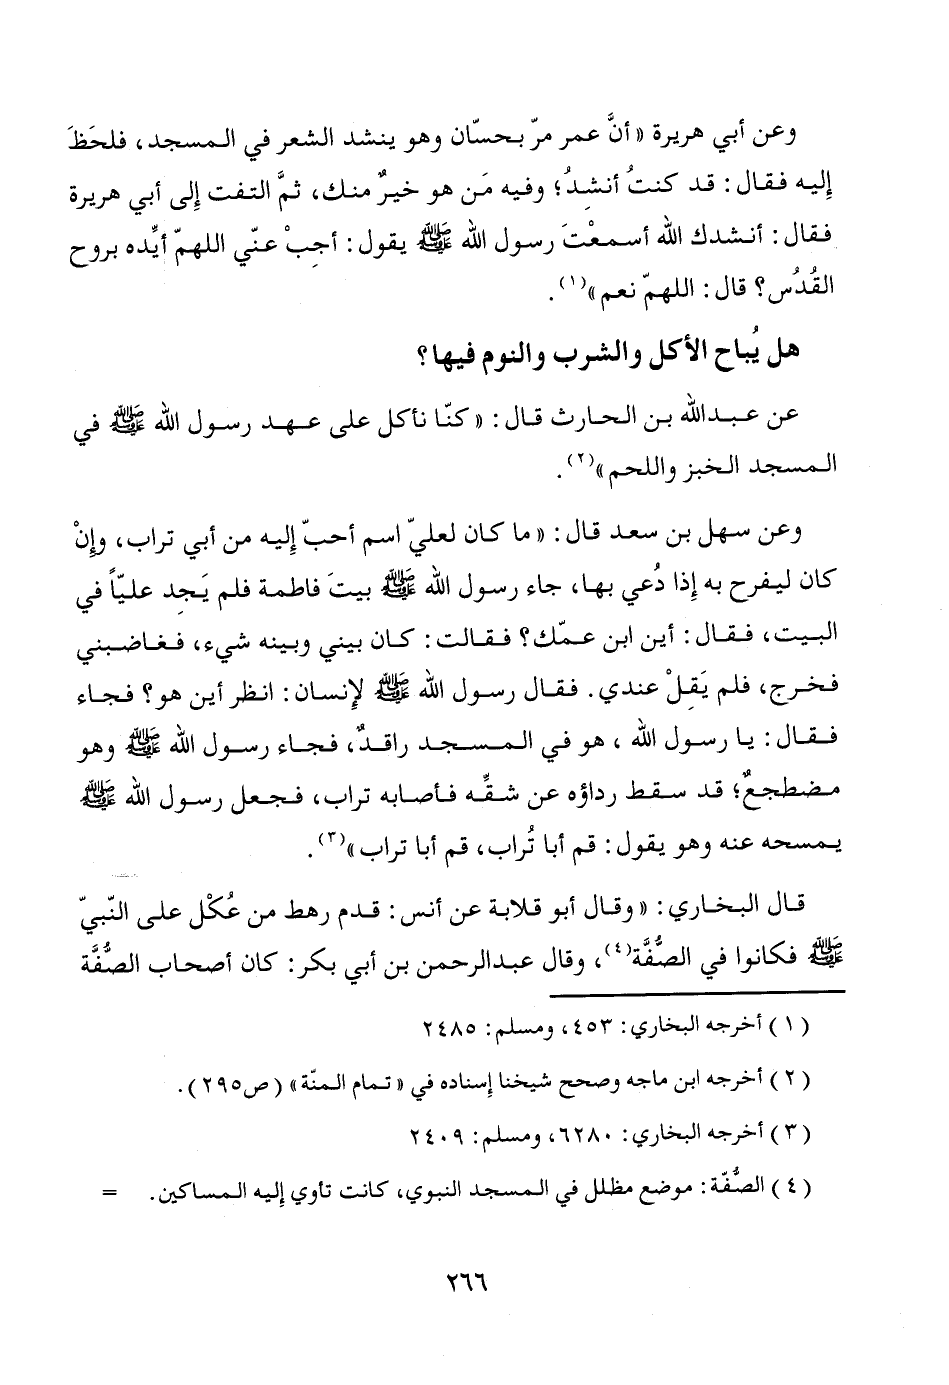 وعن أبي هريرة « أنَّ عمر مرّ بحسّان وهو ينشد الشعر في المسجد، فلحَظَ
إليه فقال: قد كنتُ أُنشِدُ؛ وفيه مَن هو خيرٌ منك، ثمَّ التفت إِلى أبي هريرة
فقال: أنشدك الله أسمعْتَ رسول الله ﷺ يقول: أجِبْ عنّي اللهمّ أيِّده بروح
القُدُس؟ قال: اللهمّ نعم»(١).
هل يُباح الأكل والشرب والنوم فيها؟
عن عبدالله بن الحارث قال: « كنّا نأكل على عهد رسول الله ﷺ في
المسجد الخبز واللحم»(٢).
وعن سهل بن سعد قال: « ما كان لعليّ اسم أحبّ إِليه من أبي تراب، وإِنْ
كان ليفرح به إِذا دُعي بها، جاء رسول الله ﷺ بيتَ فاطمة فلم يَجِد عليّاً في
البيت، فقال: أين ابن عمّك؟ فقالت: كان بيني وبينه شيء، فغاضبني
فخرج، فلم يَقِلْ عندي. فقال رسول الله ﷺ لإِنسان: انظر أين هو؟ فجاء
فقال: يا رسول الله ، هو في المسجد راقدٌ، فجاء رسول الله ﷺ وهو
مضطجعٌ؛ قد سقط رداؤه عن شقِّه فأصابه تراب، فجعل رسول الله ﷺ
يمسحه عنه وهو يقول: قم أبا تُراب، قم أبا تراب»(٣).
قال البخاري: « وقال أبو قلابة عن أنس: قدم رهط من عُكْل على النّبيّ
ﷺ فكانوا في الصُّفَّة(٤)، وقال عبدالرحمن بن أبي بكر: كان أصحاب الصُّفَّة
(١) أخرجه البخاري: ٤٥٣، ومسلم: ٢٤٨٥
(٢) أخرجه ابن ماجه وصحح شيخنا إِسناده في « تمام المنّة» (ص٢٩٥).
(٣) أخرجه البخاري: ٦٢٨٠، ومسلم: ٢٤٠٩
(٤) الصُّفّة: موضع مظلل في المسجد النبوي، كانت تأوي إِليه المساكين. =
٢٦٦